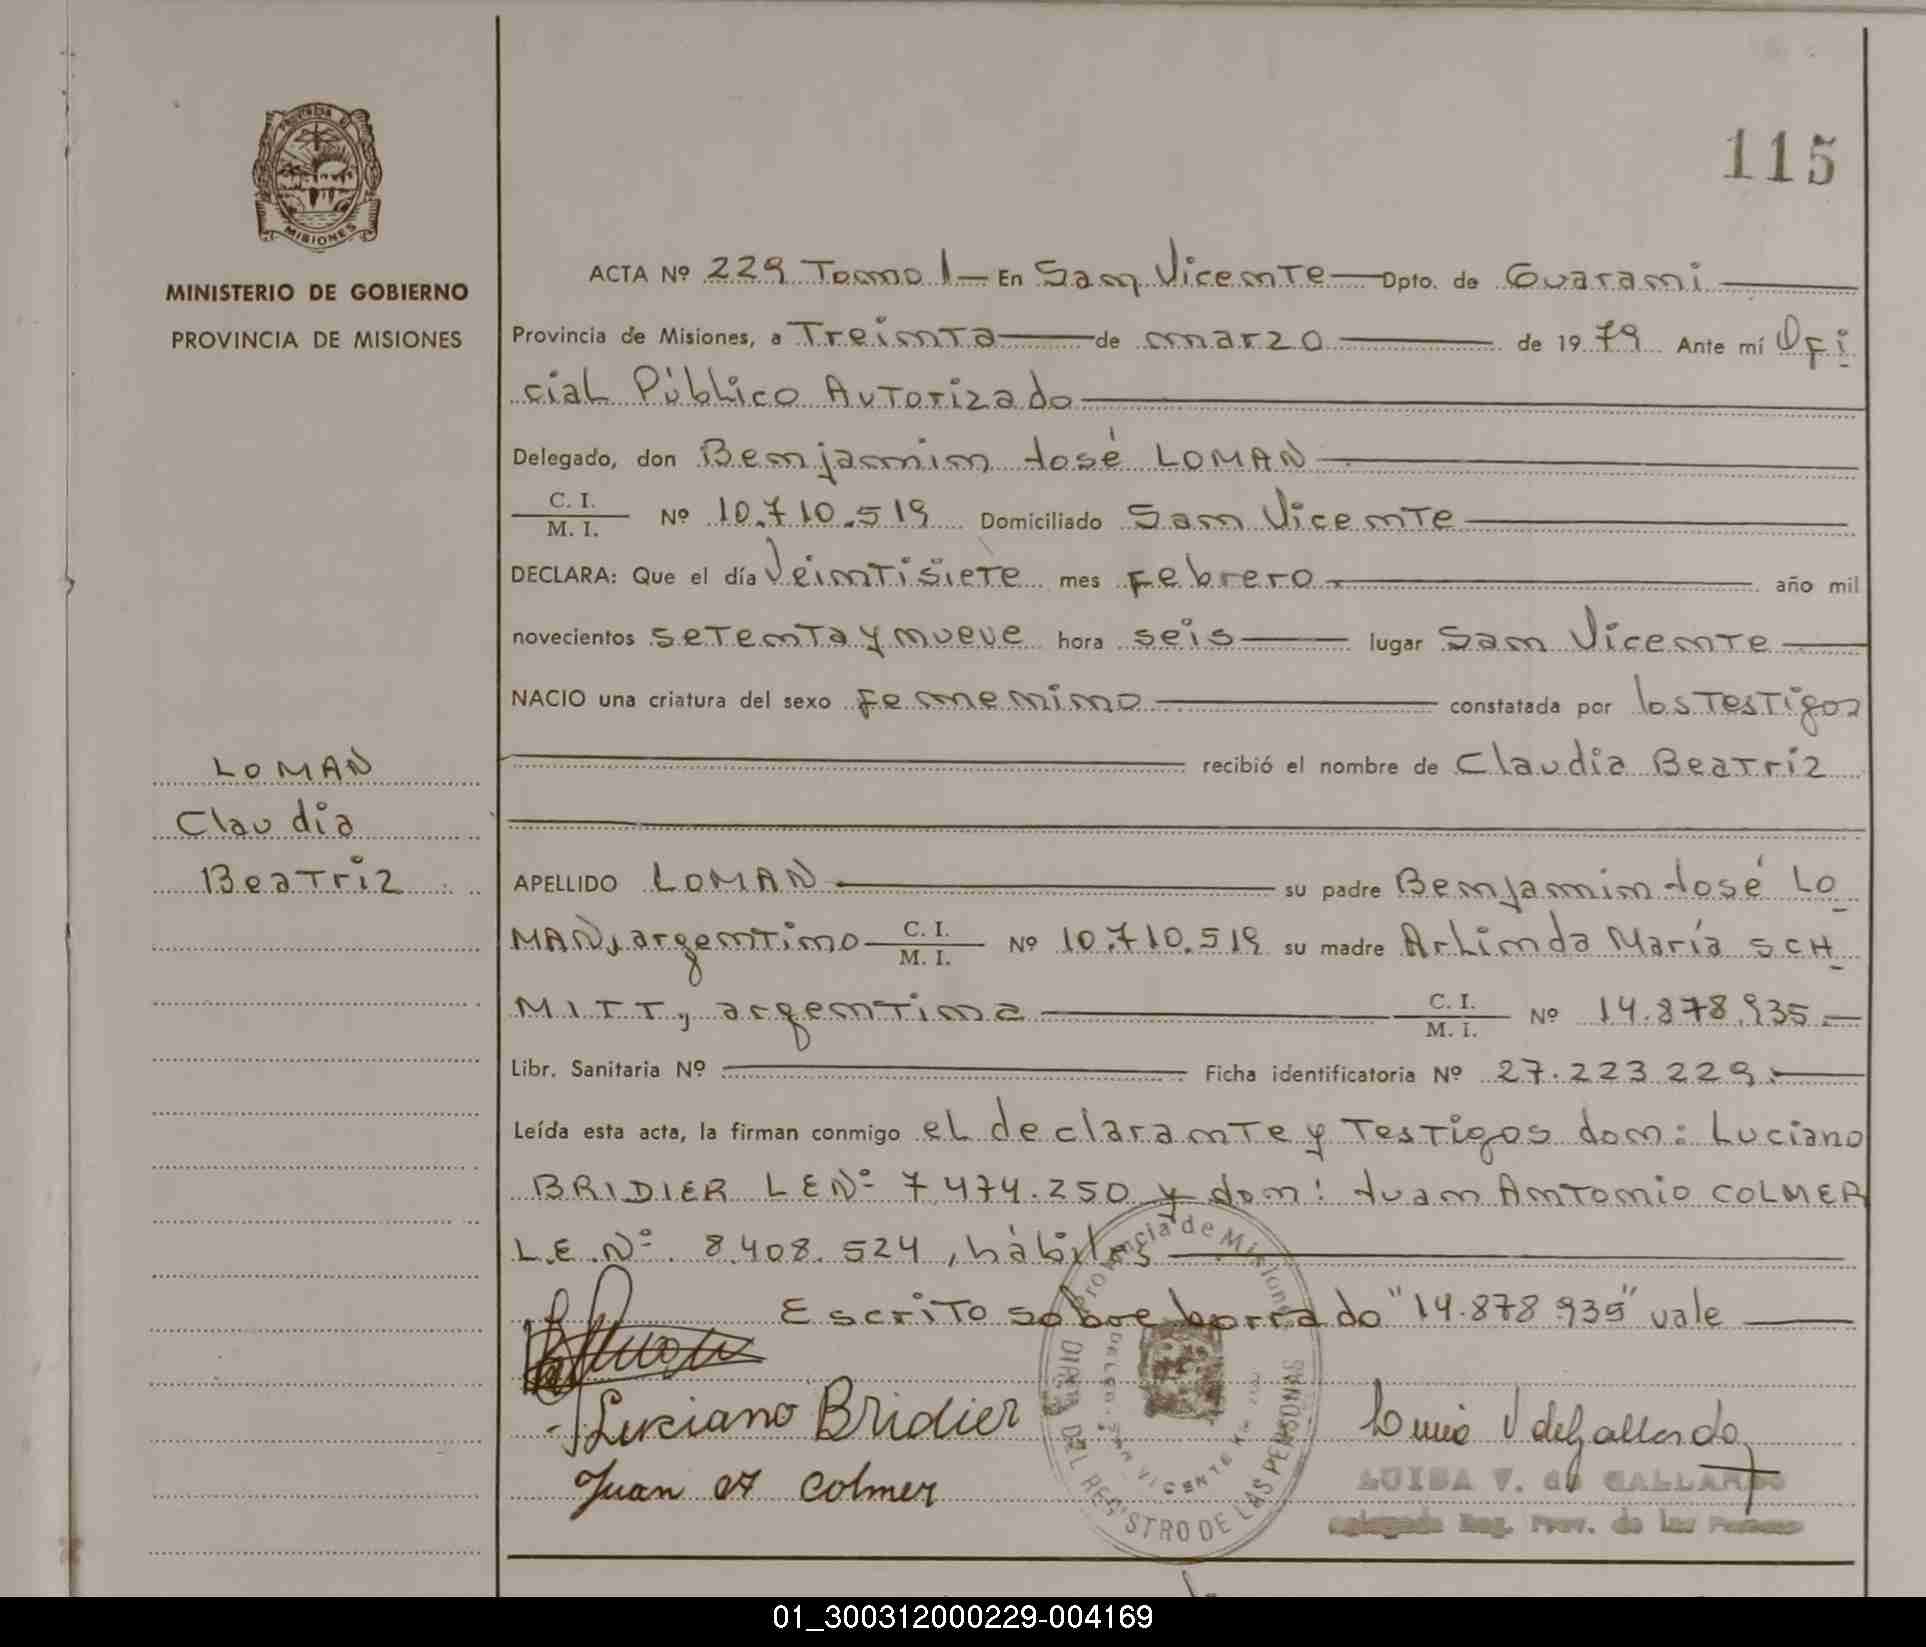 115
PROVINCIA DE
MISIONES
MINISTERIO DE GOBIERNO
PROVINCIA DE MISIONES
LOMAN
Claudia
Beatriz
ACTA Nº 229 Tomo I En San Vicente Dpto. de Guaraní
Provincia de Misiones, a Treinta de marzo de 1979 Ante mí Ofi
cial Público Autorizado
Delegado, don Benjamín José LOMAN
C. I.
M. I. Nº 10.710.519 Domiciliado San Vicente
DECLARA: Que el día Veintisiete mes Febrero año mil
novecientos setenta y nueve hora seis lugar San Vicente
NACIO una criatura del sexo Femenino constatada por los Testigos
recibió el nombre de Claudia Beatriz
APELLIDO LOMAN su padre Benjamin José LO
MAN, argentino C. I. M. I. Nº 10.710.519 su madre Arlinda María SCH
MITT, argentina C. I. M. I. Nº 14.878.935.
Libr. Sanitaria Nº Ficha identificatoria Nº 27.223.229.
Leída esta acta, la firman conmigo el declarante y Testigos don: Luciano
BRIDIER L E Nº 7.474.250 y don: Juan Antonio COLMER
L.E. Nº 8.408.524, hábiles
Escrito sobre borrado "14.878.935" vale
Luciano Bridier
Juan A Colmer
Provincia de Misiones
DIREC. DEL REGISTRO DE LAS PERSONAS
SAN VICENTE
V de Gallardo
LUISA V. de GALLARDO
Delegada Reg. Prov. de las Personas
01_300312000229-004169